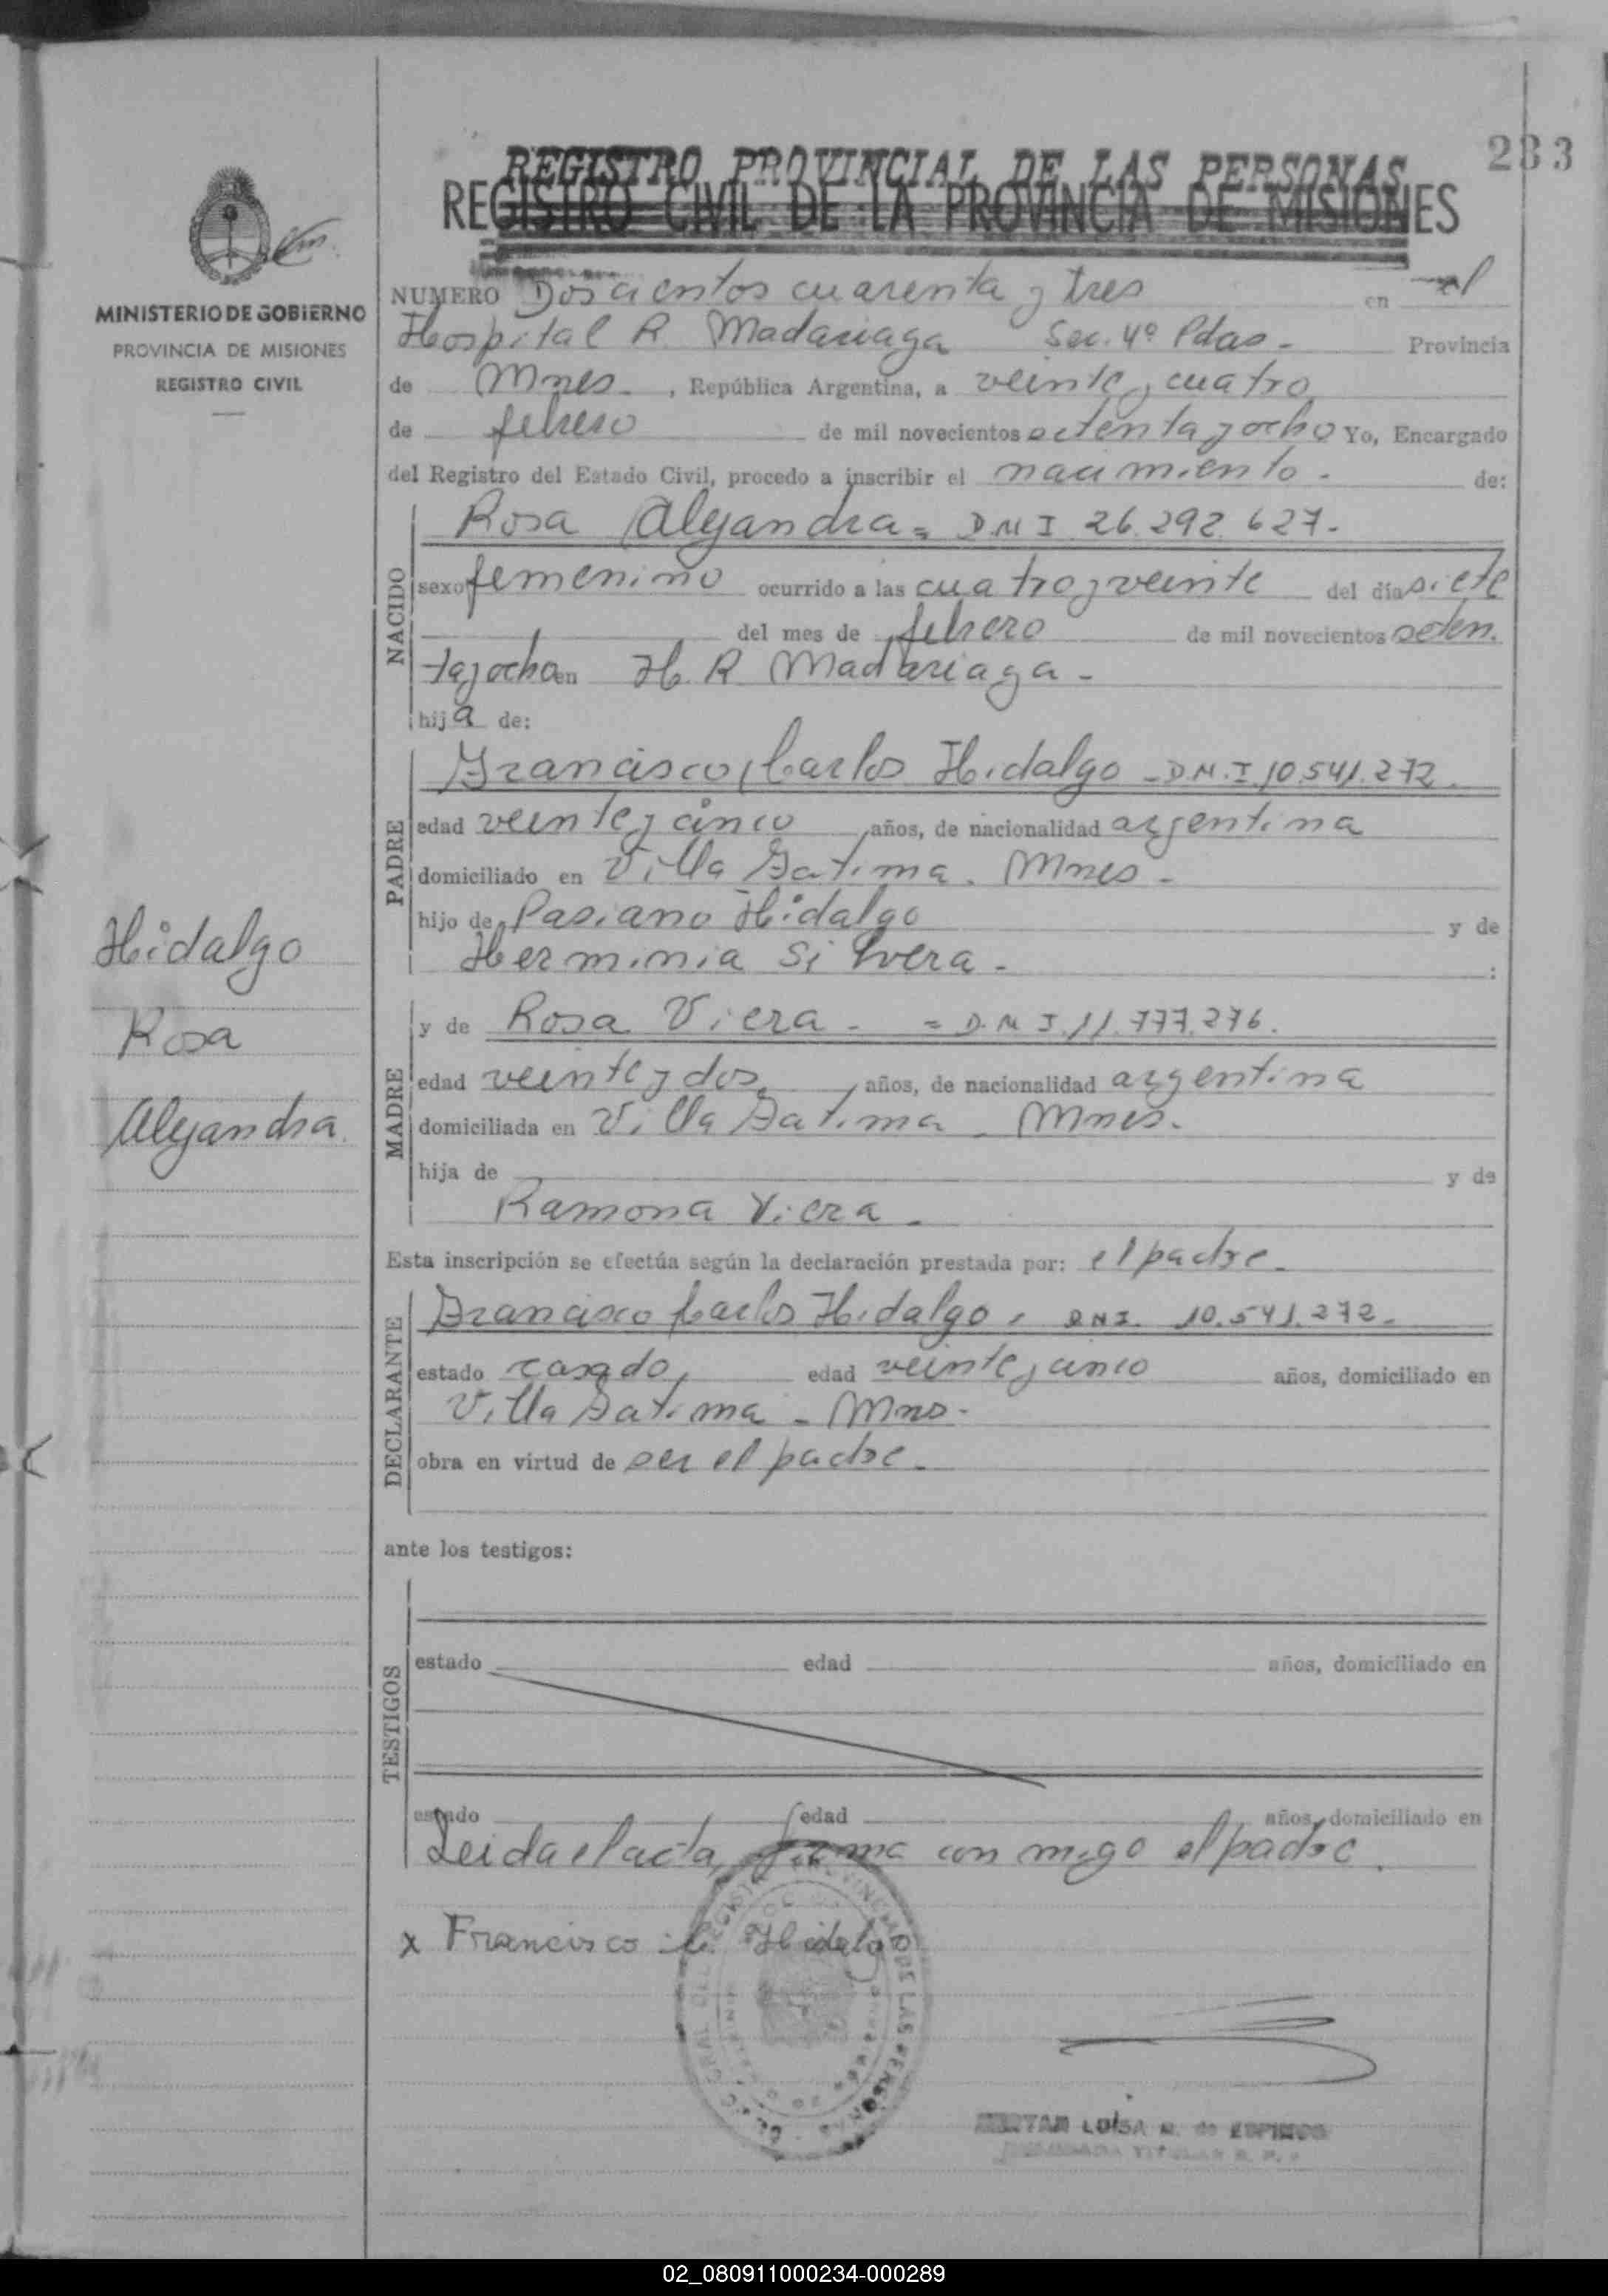 233
REGISTRO PROVINCIAL DE LAS PERSONAS
REGISTRO CIVIL DE LA PROVINCIA DE MISIONES
MINISTERIO DE GOBIERNO
PROVINCIA DE MISIONES
REGISTRO CIVIL
NUMERO Doscientos cuarenta y tres en el
Hospital R. Madariaga Sec. 4º Pdas - Provincia
de Mnes. , República Argentina, a veinte y cuatro
de febrero de mil novecientos setenta y ocho Yo, Encargado
del Registro del Estado Civil, procedo a inscribir el nacimiento - de:
NACIDO
Rosa Alejandra = D.N.I 26.292.627.-
sexo femenino ocurrido a las cuatro y veinte del día siete
del mes de febrero de mil novecientos seten.
ta y ocho en H. R Madariaga -
hija de:
PADRE
Francisco Carlos Hidalgo - D.N.I. 10.541.272.
edad veinte y cinco años, de nacionalidad argentina
domiciliado en Villa Fatima. Mnes -
hijo de Pasiano Hidalgo y de
Herminia Silvera - :
Hidalgo
Rosa
Alejandra.
MADRE
y de Rosa Viera - = D.N.I. 11.777.276.
edad veinte y dos, años, de nacionalidad argentina
domiciliada en Villa Fatima - Mnes.
hija de y de
Ramona Viera -
Esta inscripción se efectúa según la declaración prestada por: el padre -
DECLARANTE
Francisco Carlos Hidalgo, D.N.I. 10.541.272.-
estado casado, edad veinte y cinco años, domiciliado en
Villa Fatima - Mnes -
obra en virtud de ser el padre -
ante los testigos:
TESTIGOS
estado edad años, domiciliado en
estado edad años, domiciliado en
Leida el acta, firma con migo el padre.
x Francisco C. Hidalgo
LUISA M. de
02_080911000234-000289